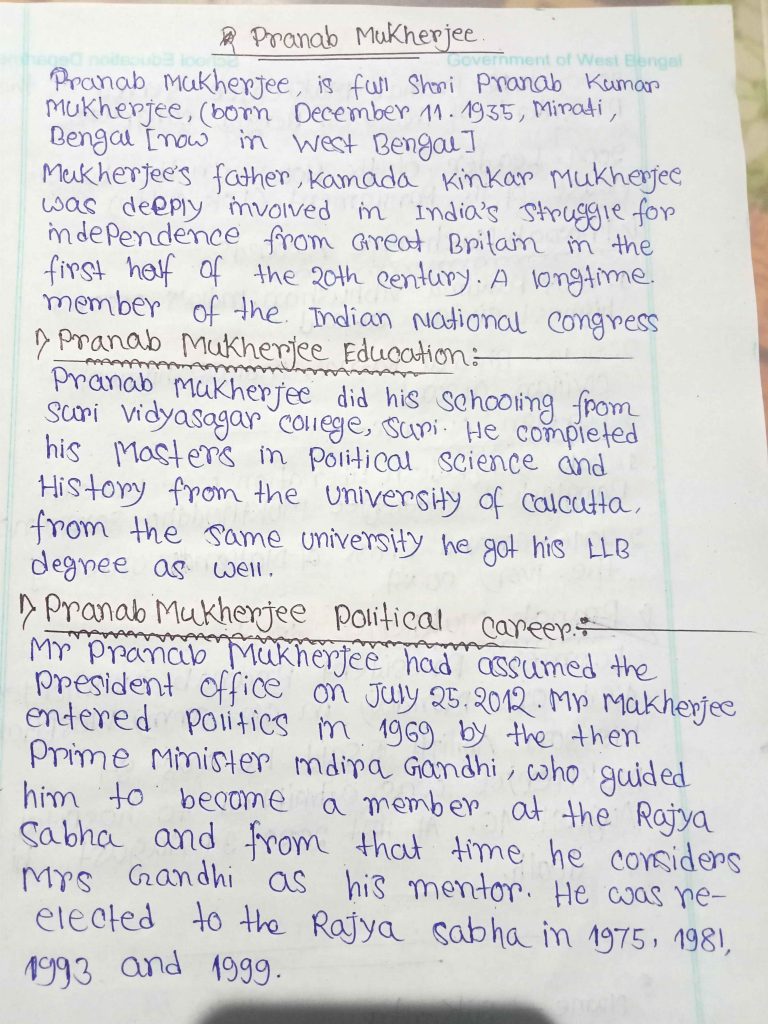 Pranab Mukherjee.
Government of West Bengal
Pranab Mukherjee, is full Shri Pranab Kumar
Mukherjee, (born December 11. 1935, Mirati,
Bengal [now in West Bengal]
Mukherjee's father, Kamada Kinkar Mukherjee
was deeply involved in India's struggle for
independence from Great Britain in the
first half of the 20th century. A longtime.
member of the. Indian National Congress
Pranab Mukherjee Education:
Pranab Mukherjee did his schooling from
Suri Vidyasagar college, Suri. He completed
his Masters in Political Science and
History from the University of Calcutta.
from the same university he got his LLB
degree as well.
Pranab Mukherjee Political Career:
Mr Pranab Mukherjee had assumed the
President office on July 25. 2012. Mr Makherjee
entered politics in 1969 by the then
Prime Minister Indira Gandhi, who guided
him to become a member at the Rajya
Sabha and from that time he considers
Mrs Gandhi as his mentor. He was re-
elected to the Rajya sabha in 1975, 1981,
1993 and 1999.